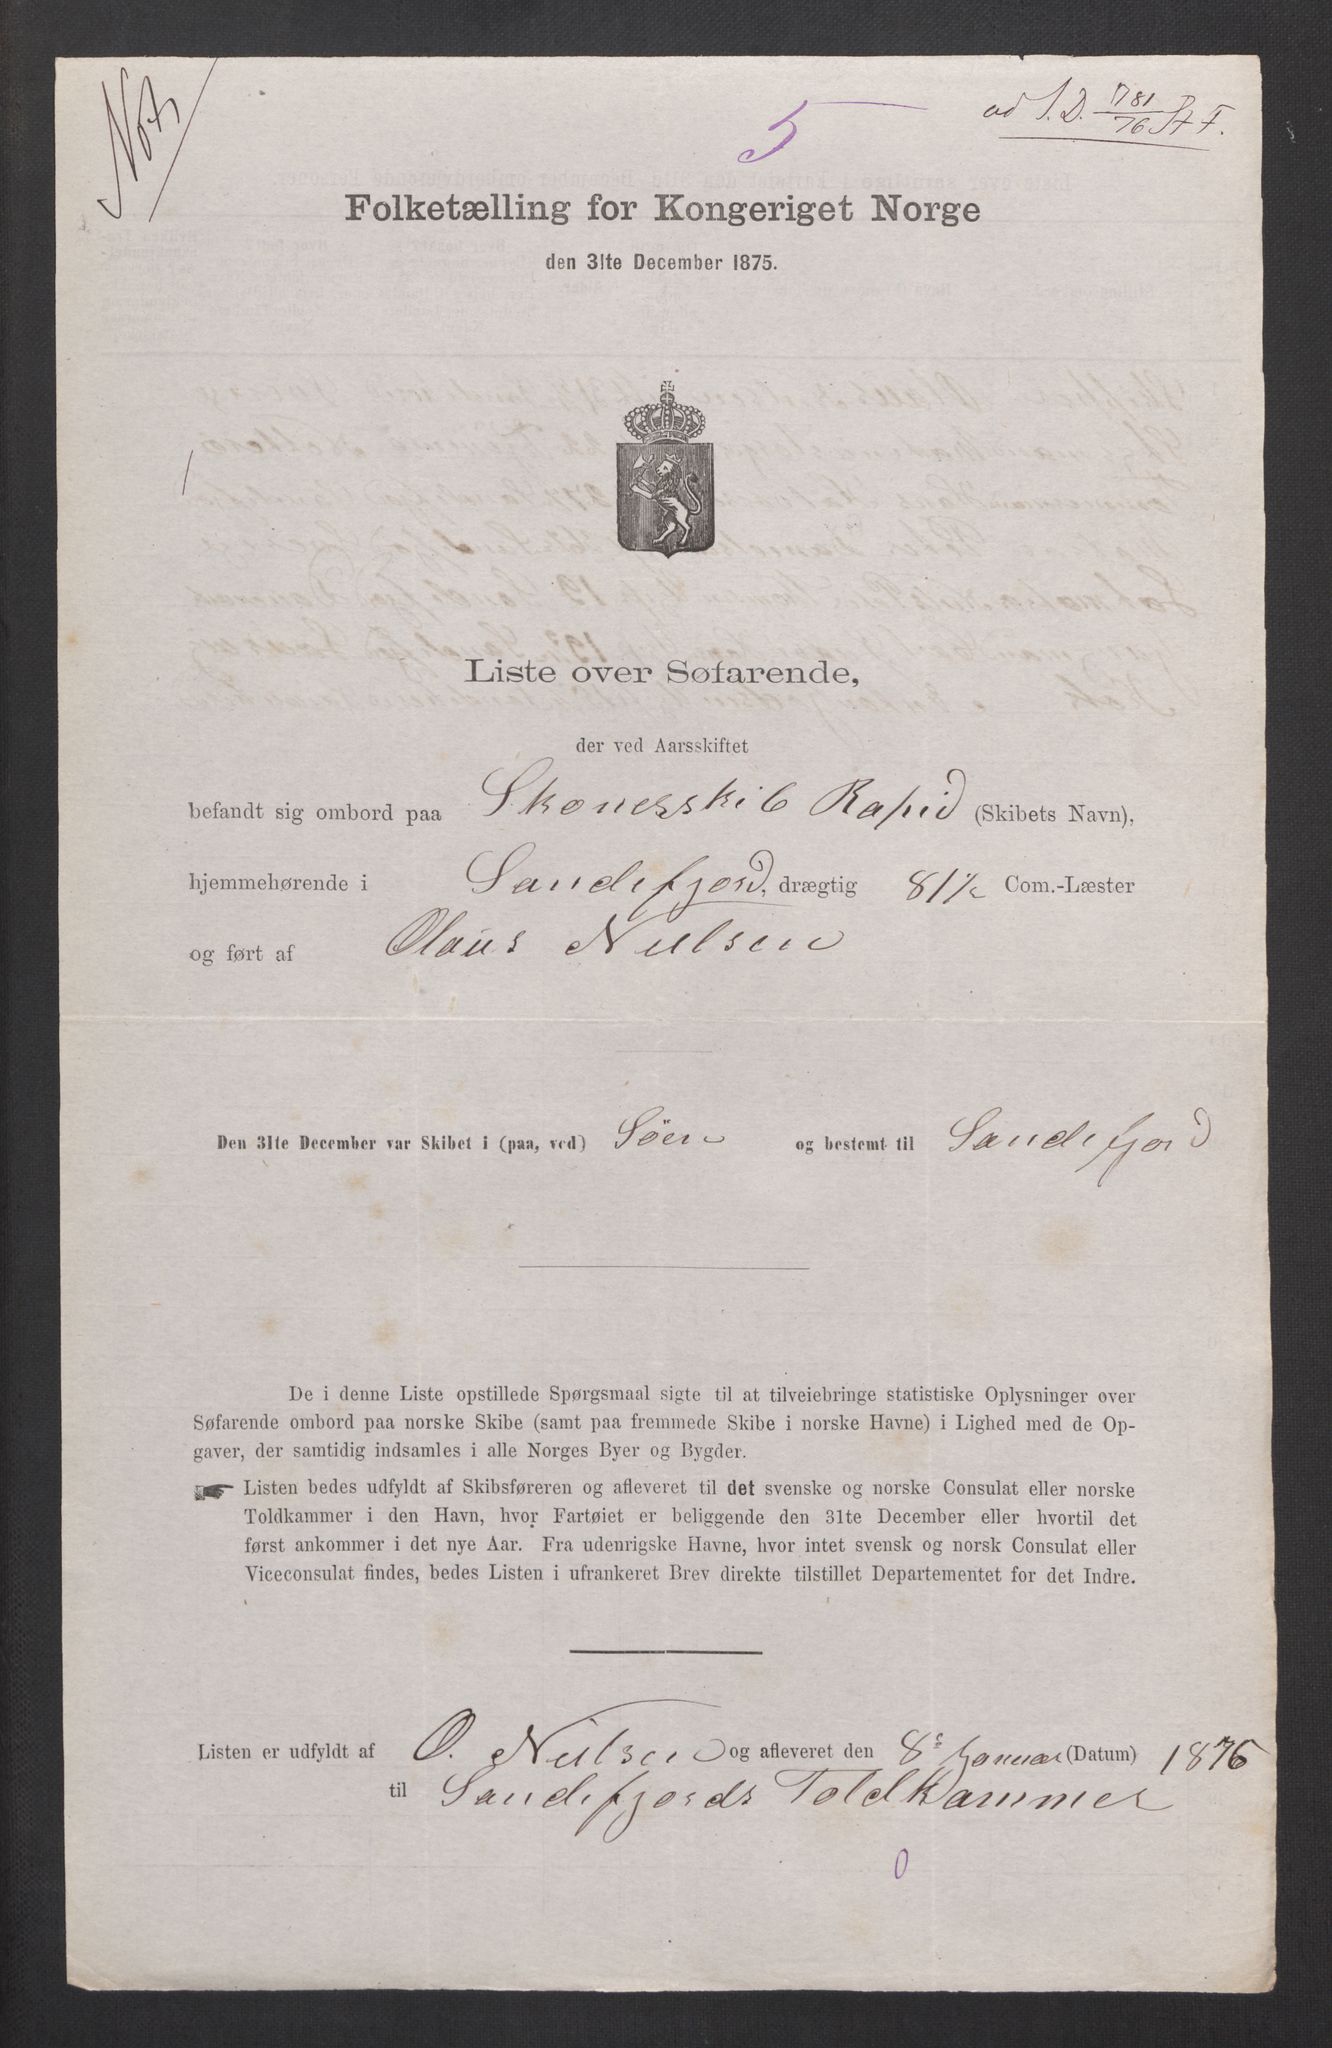 Not
5
ad I. D. 781/76 St F.
Folketælling for Kongeriget Norge
den 31te December 1875.
Liste over Søfarende,
der ved Aarsskiftet
befandt sig ombord paa Skonerskib Rapid (Skibets Navn),
hjemmehørende i Sandefjord, drægtig 81½ Com.-Læster
og ført af Olaus Nielsen
Den 31te December var Skibet i (paa, ved) Söen og bestemt til Sandefjord
De i denne Liste opstillede Spørgsmaal sigte til at tilveiebringe statistiske Oplysninger over
Søfarende ombord paa norske Skibe (samt paa fremmede Skibe i norske Havne) i Lighed med de Op-
gaver, der samtidig indsamles i alle Norges Byer og Bygder.
Listen bedes udfyldt af Skibsføreren og afleveret til det svenske og norske Consulat eller norske
Toldkammer i den Havn, hvor Fartøiet er beliggende den 31te December eller hvortil det
først ankommer i det nye Aar. Fra udenrigske Havne, hvor intet svensk og norsk Consulat eller
Viceconsulat findes, bedes Listen i ufrankeret Brev direkte tilstillet Departementet for det Indre.
Listen er udfyldt af O. Nielsen og afleveret den 8de Januar (Datum) 1876
til Sandefjords Toldkammer
0